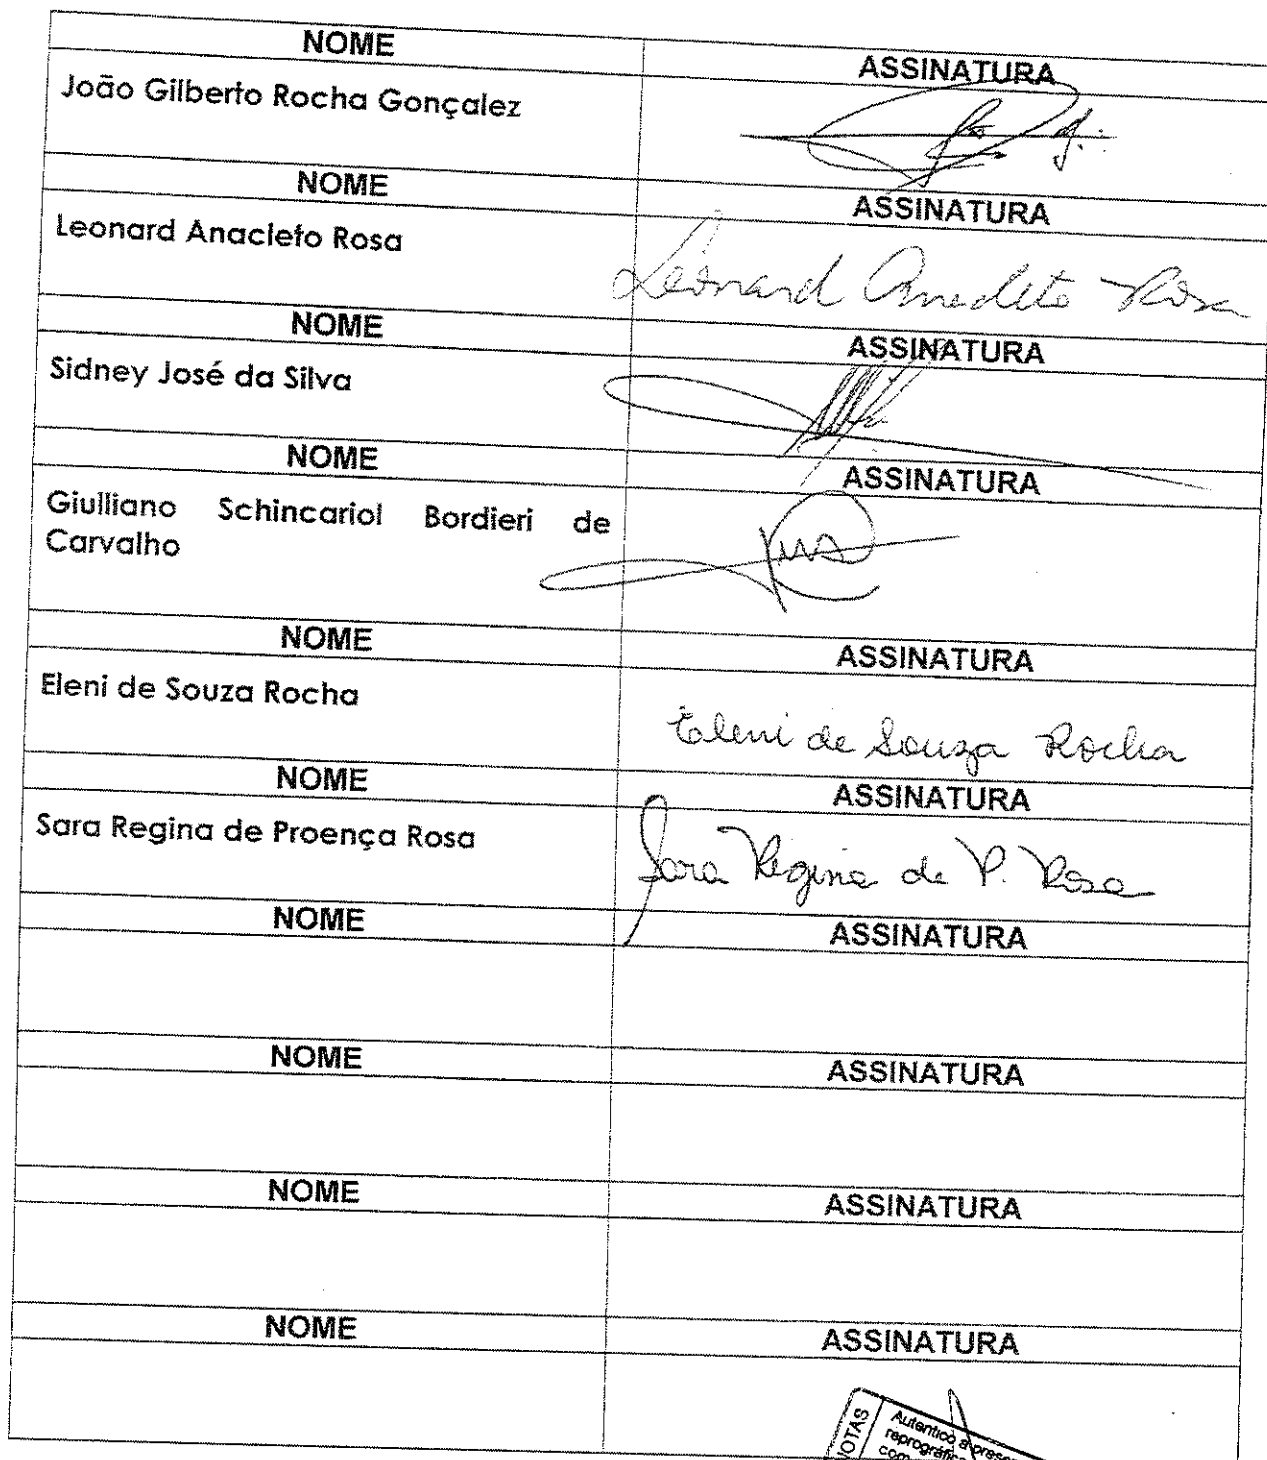 NOME
ASSINATURA
João Gilberto Rocha Gonçalez
NOME
ASSINATURA
Leonard Anacleto Rosa
Leonard Anacleto Rosa
NOME
ASSINATURA
Sidney José da Silva
NOME
ASSINATURA
Giulliano Schincariol Bordieri de
Carvalho
NOME
ASSINATURA
Eleni de Souza Rocha
Eleni de Souza Rocha
NOME
ASSINATURA
Sara Regina de Proença Rosa
Sara Regina de P. Rosa
NOME
ASSINATURA
NOME
ASSINATURA
NOME
ASSINATURA
NOME
ASSINATURA
NOTAS
Autentico a